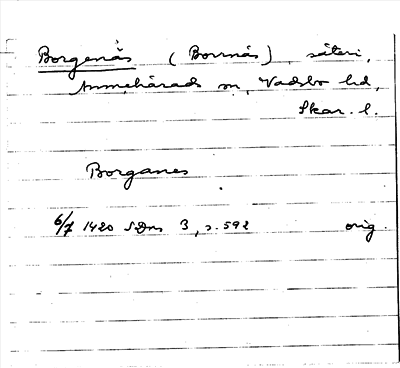 Borgenäs (Borrnäs), säteri,
Amnehärads sn, Vadsbo hd,
Skar. l.
Borganes
6/7 1420 SDns 3, s. 592 orig.